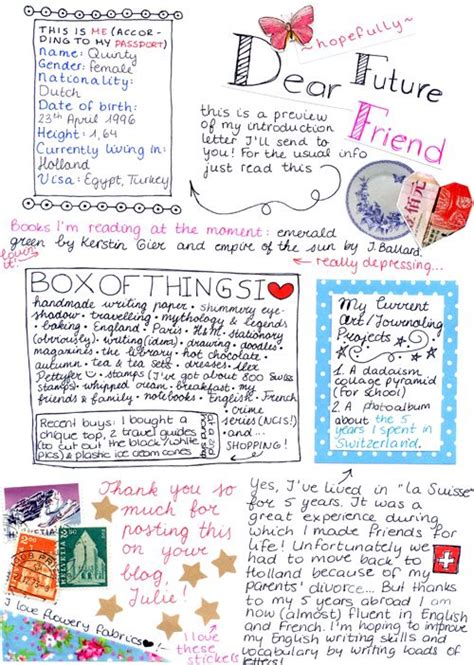 THIS IS ME (ACCOR-
DING TO MY PASSPORT)
name: Quinty
Gender: female
Nationality:
Dutch
Date of birth:
23th April 1996
Height: 1,64
Currently living in:
Holland
Visa: Egypt, Turkey
~hopefully~
Dear Future
Friend
this is a preview
of my introduction
letter I'll send to
you! For the usual info
just read this
Books I'm reading at the moment: emerald
green by Kerstin Gier and empire of the sun by J. Ballard.
really depressing...
BOX OF THINGS I
handmade writing paper • shimmery eye-
shadow • travelling • mythology & legends
• baking • England • Paris • H&M • stationery
(obviously) • writing (ideas) • drawing • doodles
magazines • the library • hot chocolate •
autumn • tea & tea sets • dresses • Alex
Pettyfer • stamps (I've got about 800 Swiss
stamps) • whipped cream • breakfast • my
friends & family • notebooks • English • French
• crime
series (NCIS!)
and...
SHOPPING!
Recent buys: I bought a
clique top, 2 travel guides
(to cut out the black/white
pics) & plastic ice cream cones
My Current
Art/Journaling
Projects
1. A dadaism
collage pyramid
(for school)
2. A photoalbum
about the 5
years I spent in
Switzerland.
Thank you so
much for
posting this
on your
blog,
Julie!
HELVETIA
I love flowery fabrics !
I love
these
stickers
Yes, I've lived in "la Suisse"
for 5 years. It was a
great experience during
which I made friends for
life! Unfortunately we
had to move back to
Holland because of my
parents' divorce... But thanks
to my 5 years abroad I am
now (almost) fluent in English
and French. I'm hoping to improve
my English writing skills and
vocabulary by writing loads of
letters!